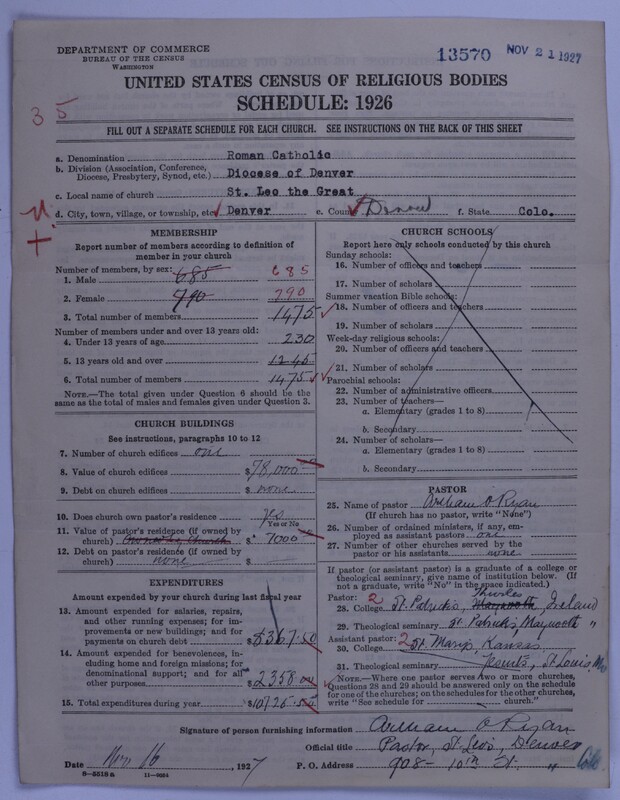 DEPARTMENT OF COMMERCE
BUREAU OF THE CENSUS
WASHINGTON
13570 NOV 21 1927
UNITED STATES CENSUS OF RELIGIOUS BODIES
SCHEDULE: 1926
35
FILL OUT A SEPARATE SCHEDULE FOR EACH CHURCH. SEE INSTRUCTIONS ON THE BACK OF THIS SHEET
a. Denomination Roman Catholic
b. Division (Association, Conference, Diocese, Presbytery, Synod, etc.) Diocese of Denver
c. Local name of church St. Leo the Great
d. City, town, village, or township, etc. Denver e. County Denver f. State Colo.
MEMBERSHIP
Report number of members according to definition of
member in your church
Number of members, by sex:
1. Male 685 685
2. Female 790 790
3. Total number of members 1475
Number of members under and over 13 years old:
4. Under 13 years of age 230
5. 13 years old and over 1245
6. Total number of members 1475
NOTE.—The total given under Question 6 should be the
same as the total of males and females given under Question 3.
CHURCH BUILDINGS
See instructions, paragraphs 10 to 12
7. Number of church edifices one
8. Value of church edifices $78,000
9. Debt on church edifices $ none
10. Does church own pastor's residence? yes
Yes or No
11. Value of pastor's residence (if owned by
church) $ 7000
12. Debt on pastor's residence (if owned by
church) none $
EXPENDITURES
Amount expended by your church during last fiscal year
13. Amount expended for salaries, repairs,
and other running expenses; for im-
provements or new buildings; and for
payments on church debt $8367.50
14. Amount expended for benevolences, in-
cluding home and foreign missions; for
denominational support; and for all
other purposes $2358.00
15. Total expenditures during year $10725
CHURCH SCHOOLS
Report here only schools conducted by this church
Sunday schools:
16. Number of officers and teachers
17. Number of scholars
Summer vacation Bible schools:
18. Number of officers and teachers
19. Number of scholars
Week-day religious schools:
20. Number of officers and teachers
21. Number of scholars
Parochial schools:
22. Number of administrative officers
23. Number of teachers—
a. Elementary (grades 1 to 8)
b. Secondary
24. Number of scholars—
a. Elementary (grades 1 to 8)
b. Secondary
PASTOR
25. Name of pastor William O'Ryan
(If church has no pastor, write "None")
26. Number of ordained ministers, if any, em-
ployed as assistant pastors one
27. Number of other churches served by the
pastor or his assistants none
If pastor (or assistant pastor) is a graduate of a college or
theological seminary, give name of institution below. (If
not a graduate, write "No" in the space indicated.)
Pastor: 2 Thurles
28. College St. Patrick's, Maynooth, Ireland
29. Theological seminary St. Patrick's, Maynooth "
Assistant pastor: 2
30. College St. Marys, Kansas
31. Theological seminary Jesuits, St. Louis, Mo
NOTE.—Where one pastor serves two or more churches,
Questions 28 and 29 should be answered only on the schedule
for one of the churches; on the schedules for the other churches,
write "See schedule for church."
Signature of person furnishing information William O'Ryan
Official title Pastor, St. Leo's, Denver
Date Nov 16, 1927 P. O. Address 908- 10th St. " Colo.
8-5518a 11-9024